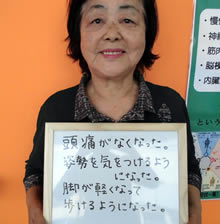 頭痛がなくなった。
姿勢を気をつけるよう
になった。
脚が軽くなって
歩けるようになった。
・慢
・神経
・筋肉
・脳梗
・内臓
という